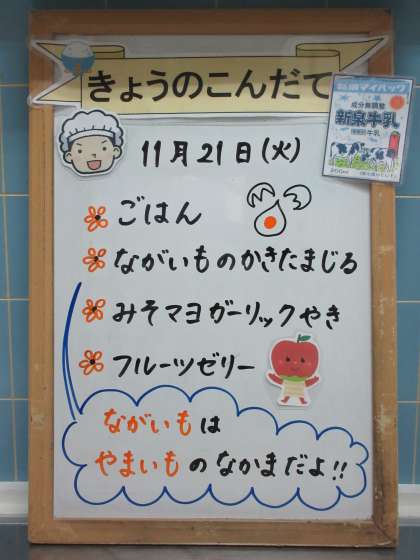 きょうのこんだて
11月21日(火)
ごはん
ながいものかきたまじる
みそマヨガーリックやき
フルーツゼリー
ながいもは
やまいものなかまだよ!!
成分無調整
新泉牛乳
牛乳
200ml